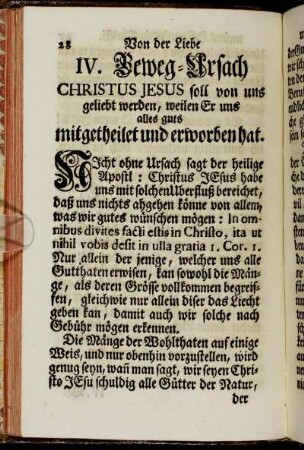 28 Von der Liebe
IV. Beweg-Ursach
CHRISTUS JESUS soll von uns
geliebt werden, weilen Er uns
alles guts
mitgetheilet und erworben hat.
NIcht ohne Ursach sagt der heilige
Apostl: Christus JEsus habe
uns mit solchen Uberfluß bereichet,
daß uns nichts abgehen könne von allem,
was wir gutes wünschen mögen: In om-
nibus divites facti estis in Christo, ita ut
nihil vobis desit in ulla gratia 1. Cor. 1.
Nur allein der jenige, welcher uns alle
Gutthaten erwisen, kan sowohl die Män-
ge, als deren Grösse vollkommen begreif-
fen, gleichwie nur allein diser das Liecht
geben kan, damit auch wir solche nach
Gebühr mögen erkennen.
Die Mänge der Wohlthaten auf einige
Weis, und nur obenhin vorzustellen, wird
genug seyn, wañ man sagt, wir seyen Chri-
sto JEsu schuldig alle Gütter der Natur,
der